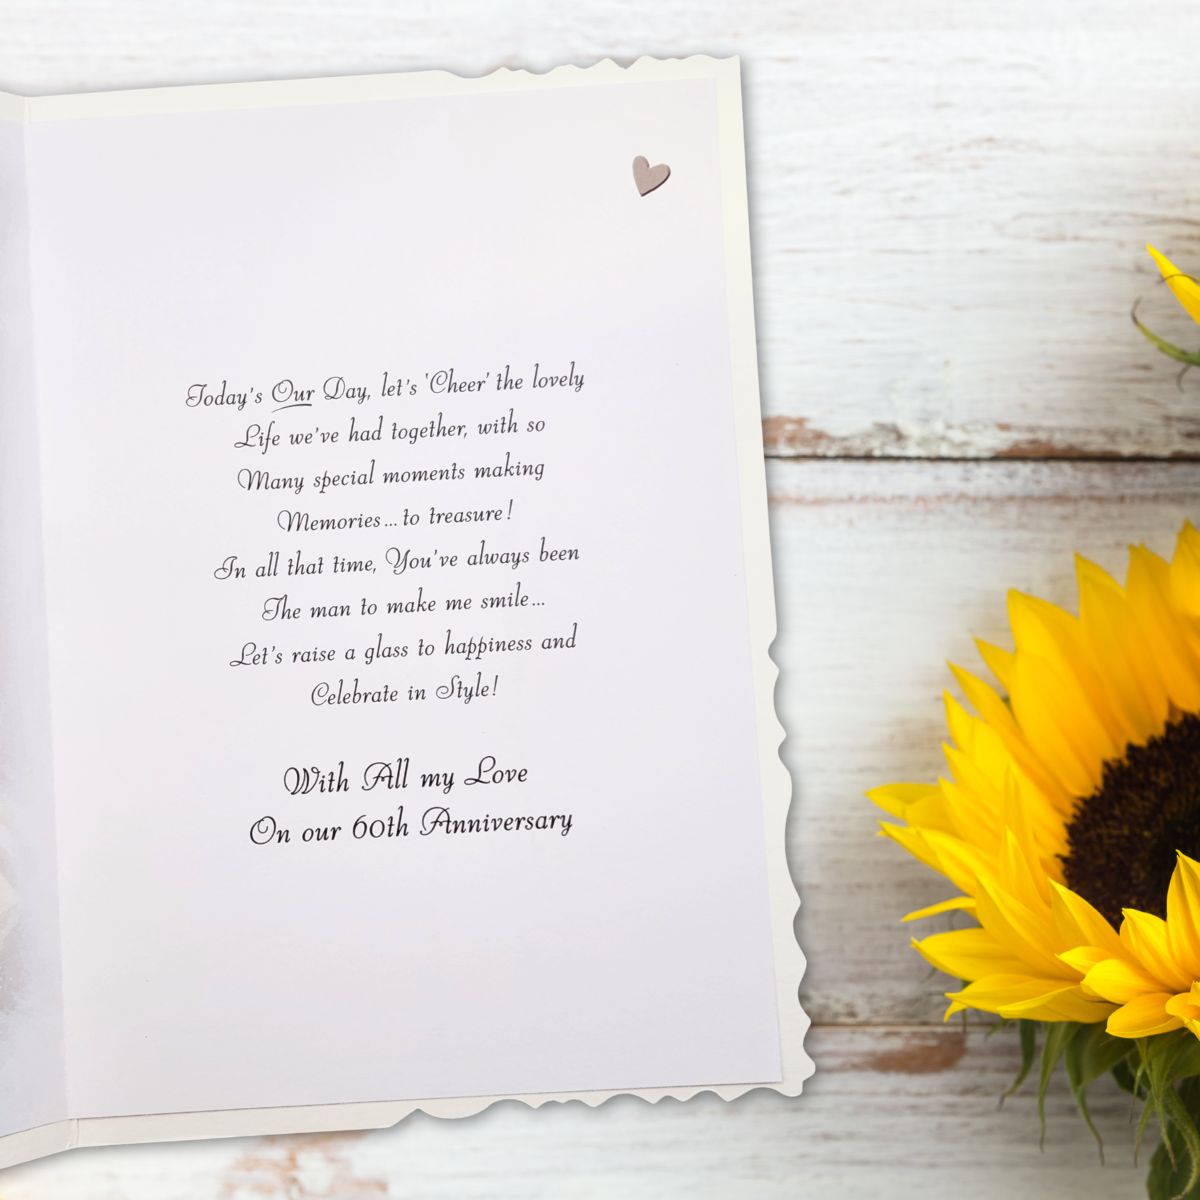 Today's Our Day, let's 'Cheer' the lovely
Life we've had together, with so
Many special moments making
Memories... to treasure!
In all that time, You've always been
The man to make me smile...
Let's raise a glass to happiness and
Celebrate in Style!
With All my Love
On our 60th Anniversary